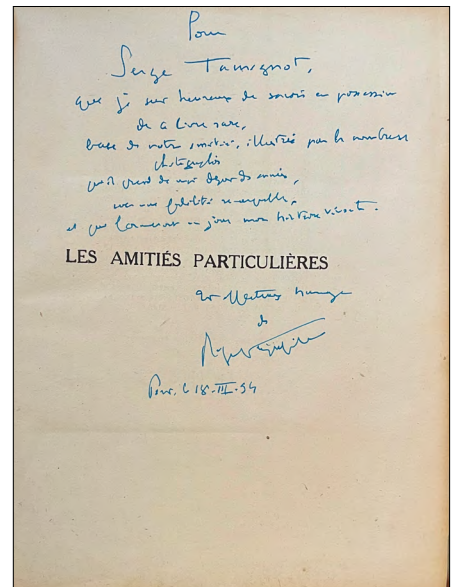 Pour
Serge Tamagnot,
que je suis heureux de savoir en possession
de ce livre rare,
base de notre amitié, illustrée par les nombreuses
photographies
qu'il prend de moi depuis des années,
avec une fidélité remarquable,
et qui formeront un jour mon histoire vivante.
LES AMITIÉS PARTICULIÈRES
affectueux hommage
de
Roger Peyrefitte
Paris, le 18.III.94